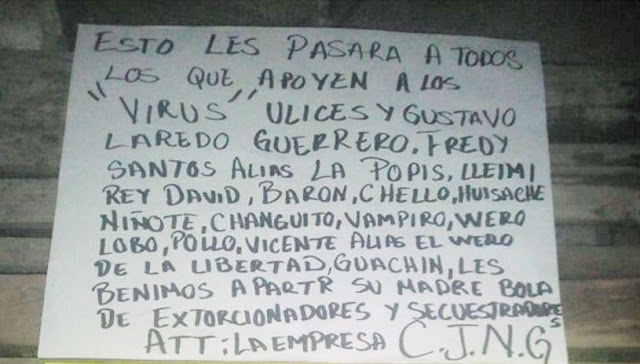 ESTO LES PASARA A TODOS
LOS QUE APOYEN A LOS
"VIRUS" ULICES Y GUSTAVO
LAREDO GUERRERO. FREDY
SANTOS ALIAS LA POPIS, LLEIMI
REY DAVID, BARON, CHELLO, HUISACHE
NIÑOTE, CHANGUITO, VAMPIRO, WERO
LOBO, POLLO, VICENTE ALIAS EL WERO
DE LA LIBERTAD, GUACHIN, LES
BENIMOS A PARTR SU MADRE BOLA
DE EXTORCIONADORES Y SECUESTRADORES
ATT: LA EMPRESA C.J.N.G